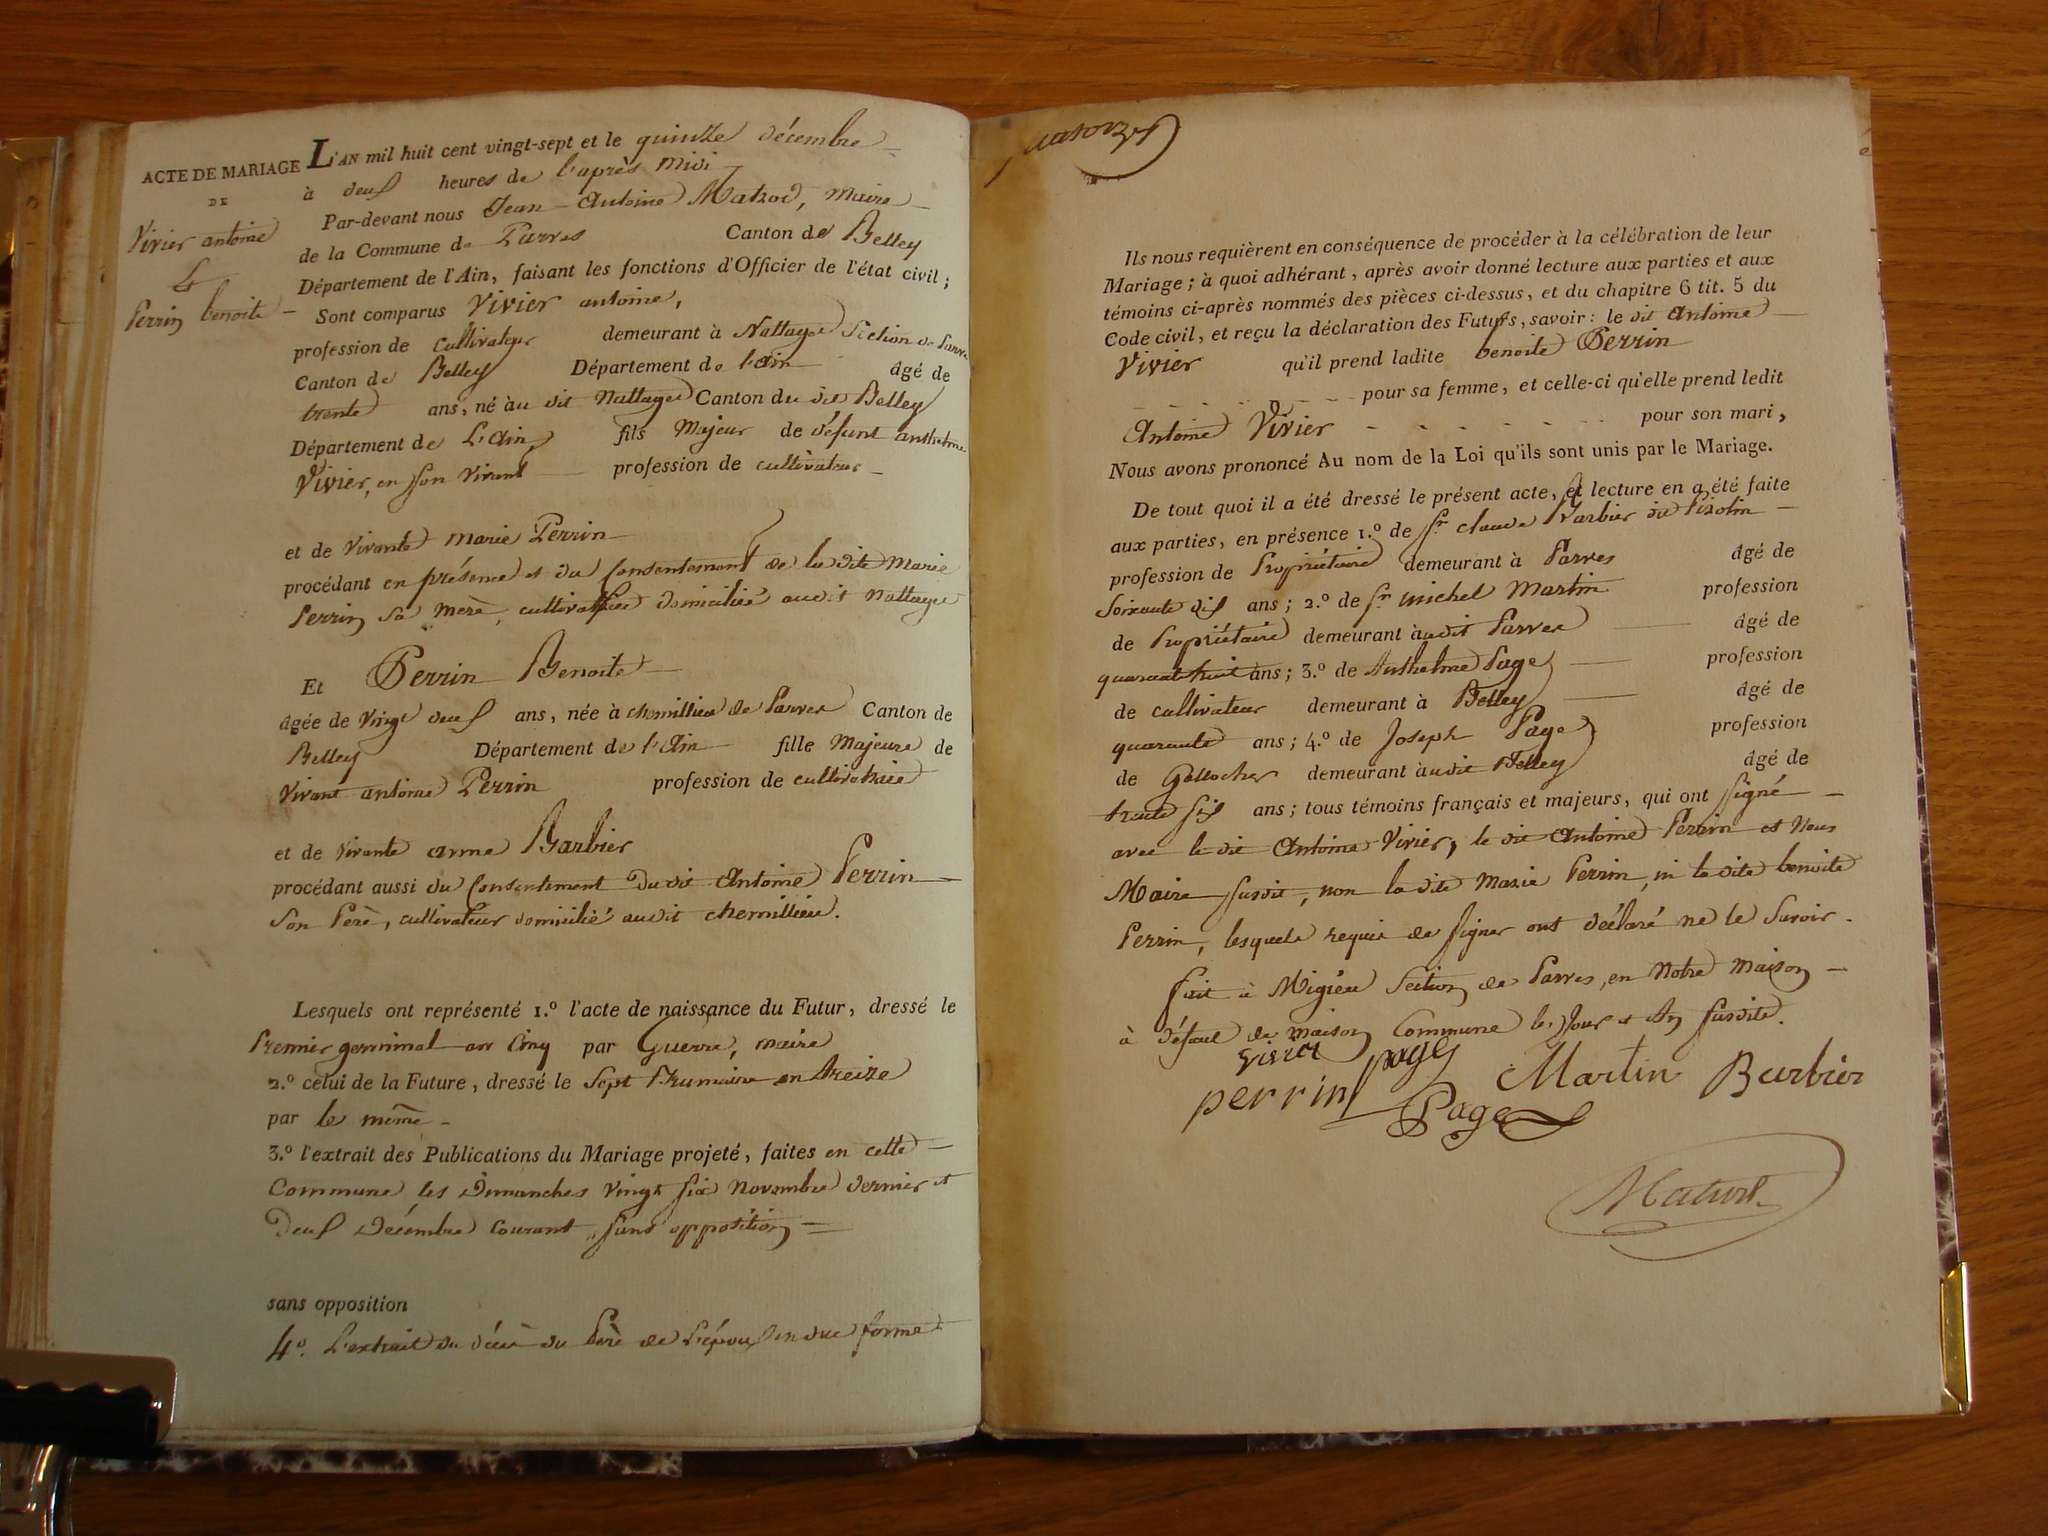 ACTE DE MARIAGE
DE
Vivier antoine
Et
Perrin benoite
L'AN mil huit cent vingt-sept et le quinze décembre
à deux heures de l'après midi
Par-devant nous Jean-Antoine, Maire
de la Commune de Parves Canton de Belley
Département de l'Ain, faisant les fonctions d'Officier de l'état civil;
Sont comparus Vivier antoine,
profession de cultivateur demeurant à Nattages Section de Parves
Canton de Belley Département de l'Ain âgé de
trente ans, né au dit Nattages Canton du dit Belley
Département de L'Ain fils Majeur de défunt anthelme
Vivier, en son vivant profession de cultivateur
et de vivante marie Perrin
procédant en présence et du Consentement de la dite Marie
Perrin sa mère, cultivatrice domiciliée audit Nattages
Et Perrin Benoite
âgée de vingt deux ans, née à chemillieu de Parves Canton de
Belley Département de l'Ain fille Majeure de
vivant antoine Perrin profession de
et de vivante anne Barbier
procédant aussi du Consentement Du dit Antoine Perrin
Son Père, cultivateur domicilié audit chemillieu.
Lesquels ont représenté 1.º l'acte de naissance du Futur, dressé le
Premier germinal an Cinq par Guerre, maire
2.º celui de la Future, dressé le Sept Brumaire an treize
par le même
3.º l'extrait des Publications du Mariage projeté, faites en cette
Commune les Dimanches vingt six Novembre dernier et
Deux Décembre Courant, sans opposition
sans opposition
4º. L'extrait du décès du Père de L'époux en due forme
Ils nous requièrent en conséquence de procéder à la célébration de leur
Mariage; à quoi adhérant, après avoir donné lecture aux parties et aux
témoins ci-après nommés des pièces ci-dessus, et du chapitre 6 tit. 5 du
Code civil, et reçu la déclaration des Futurs, savoir: le dit Antoine
Vivier qu'il prend ladite benoite Perrin
pour sa femme, et celle-ci qu'elle prend ledit
Antoine Vivier pour son mari,
Nous avons prononcé Au nom de la Loi qu'ils sont unis par le Mariage.
De tout quoi il a été dressé le présent acte, et lecture en a été faite
aux parties, en présence 1.º de Sr. claude Barbier dit
profession de Propriétaire demeurant à Parves âgé de
Soixante dix ans; 2.º de Sr. michel Martin profession
de Propriétaire demeurant audit Parves âgé de
quarante huit ans; 3.º de Anthelme Page profession
de cultivateur demeurant à Belley âgé de
quarante ans; 4.º de Joseph Page profession
de Galocher demeurant audit Belley âgé de
trente six ans; tous témoins français et majeurs, qui ont signé
avec le dit Antoine Vivier, le dit Antoine Perrin et Nous
Maire susdit, non la dite Marie Perrin, ni la dite benoite
Perrin, lesquels requis de signer ont déclaré ne le Savoir.
fait à Migieu Section de Parves, en Notre Maison
à défaut de maison Commune les Jour et An susdits.
vivier page Martin Barbier
perrin Page